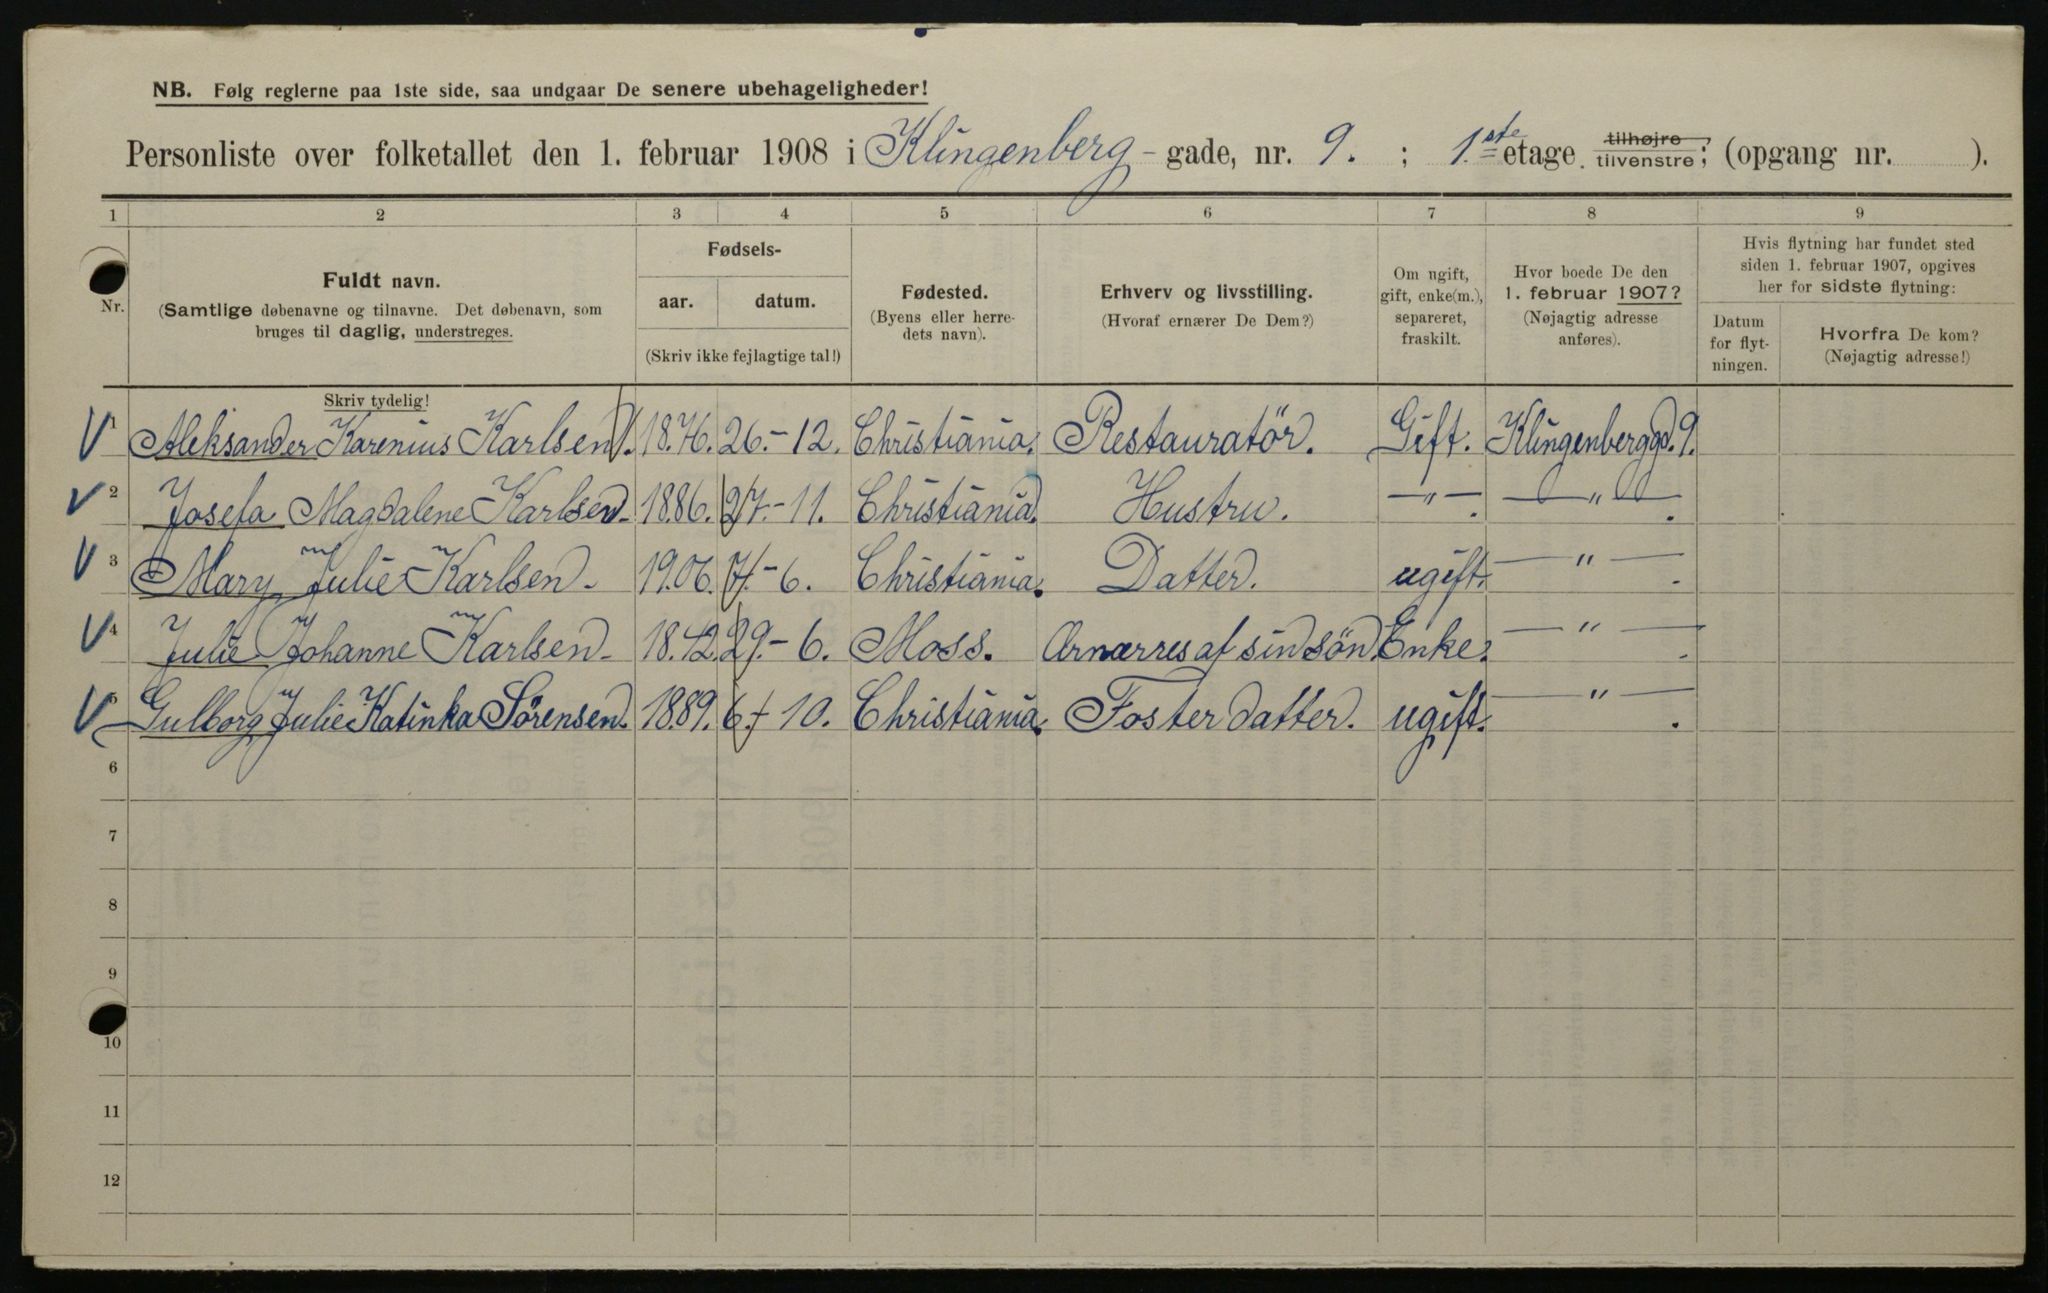 NB. Følg reglerne paa 1ste side, saa undgaar De senere ubehageligheder!
Personliste over folketallet den 1. februar 1908 i Klingenberg - gade, nr. 9. ; 1.ste etage. tilhøjre tilvenstre; (opgang nr. ).
1 2 3 4 5 6 7 8 9
Nr.
Fuldt navn.
(Samtlige døbenavne og tilnavne. Det døbenavn, som
bruges til daglig, understreges.
Fødsels-
aar. datum.
(Skriv ikke fejlagtige tal!)
Fødested.
(Byens eller herre-
dets navn).
Erhverv og livsstilling.
(Hvoraf ernærer De Dem?)
Om ugift,
gift, enke(m.),
separeret,
fraskilt.
Hvor boede De den
1. februar 1907?
(Nøjagtig adresse
anføres).
Hvis flytning har fundet sted
siden 1. februar 1907, opgives
her for sidste flytning:
Datum
for flyt-
ningen.
Hvorfra De kom?
(Nøjagtig adresse!)
Skriv tydelig!
1 Aleksander Karenius Karlsen. 1876. 26.-12. Christiania. Restauratör. Gift. Klingenberggd. 9.
2 Josefa Magdalene Karlsen. 1886. 27.-11. Christiania. Hustru. —"—. —"—.
3 Mary Julie Karlsen. 1906. 7.-6. Christiania. Datter. ugift. —"—.
4 Julie Johanne Karlsen. 1842. 29.-6. Moss. Ærnærres af sin sön. Enke. —"—.
5 Gulborg Julie Katinka Sörensen. 1889. 6.-10. Christiania. Foster datter. ugift. —"—.
6
7
8
9
10
11
12